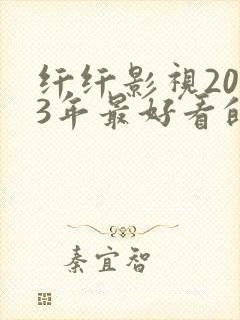 纤纤影視20
3年最好看的
秦宜智